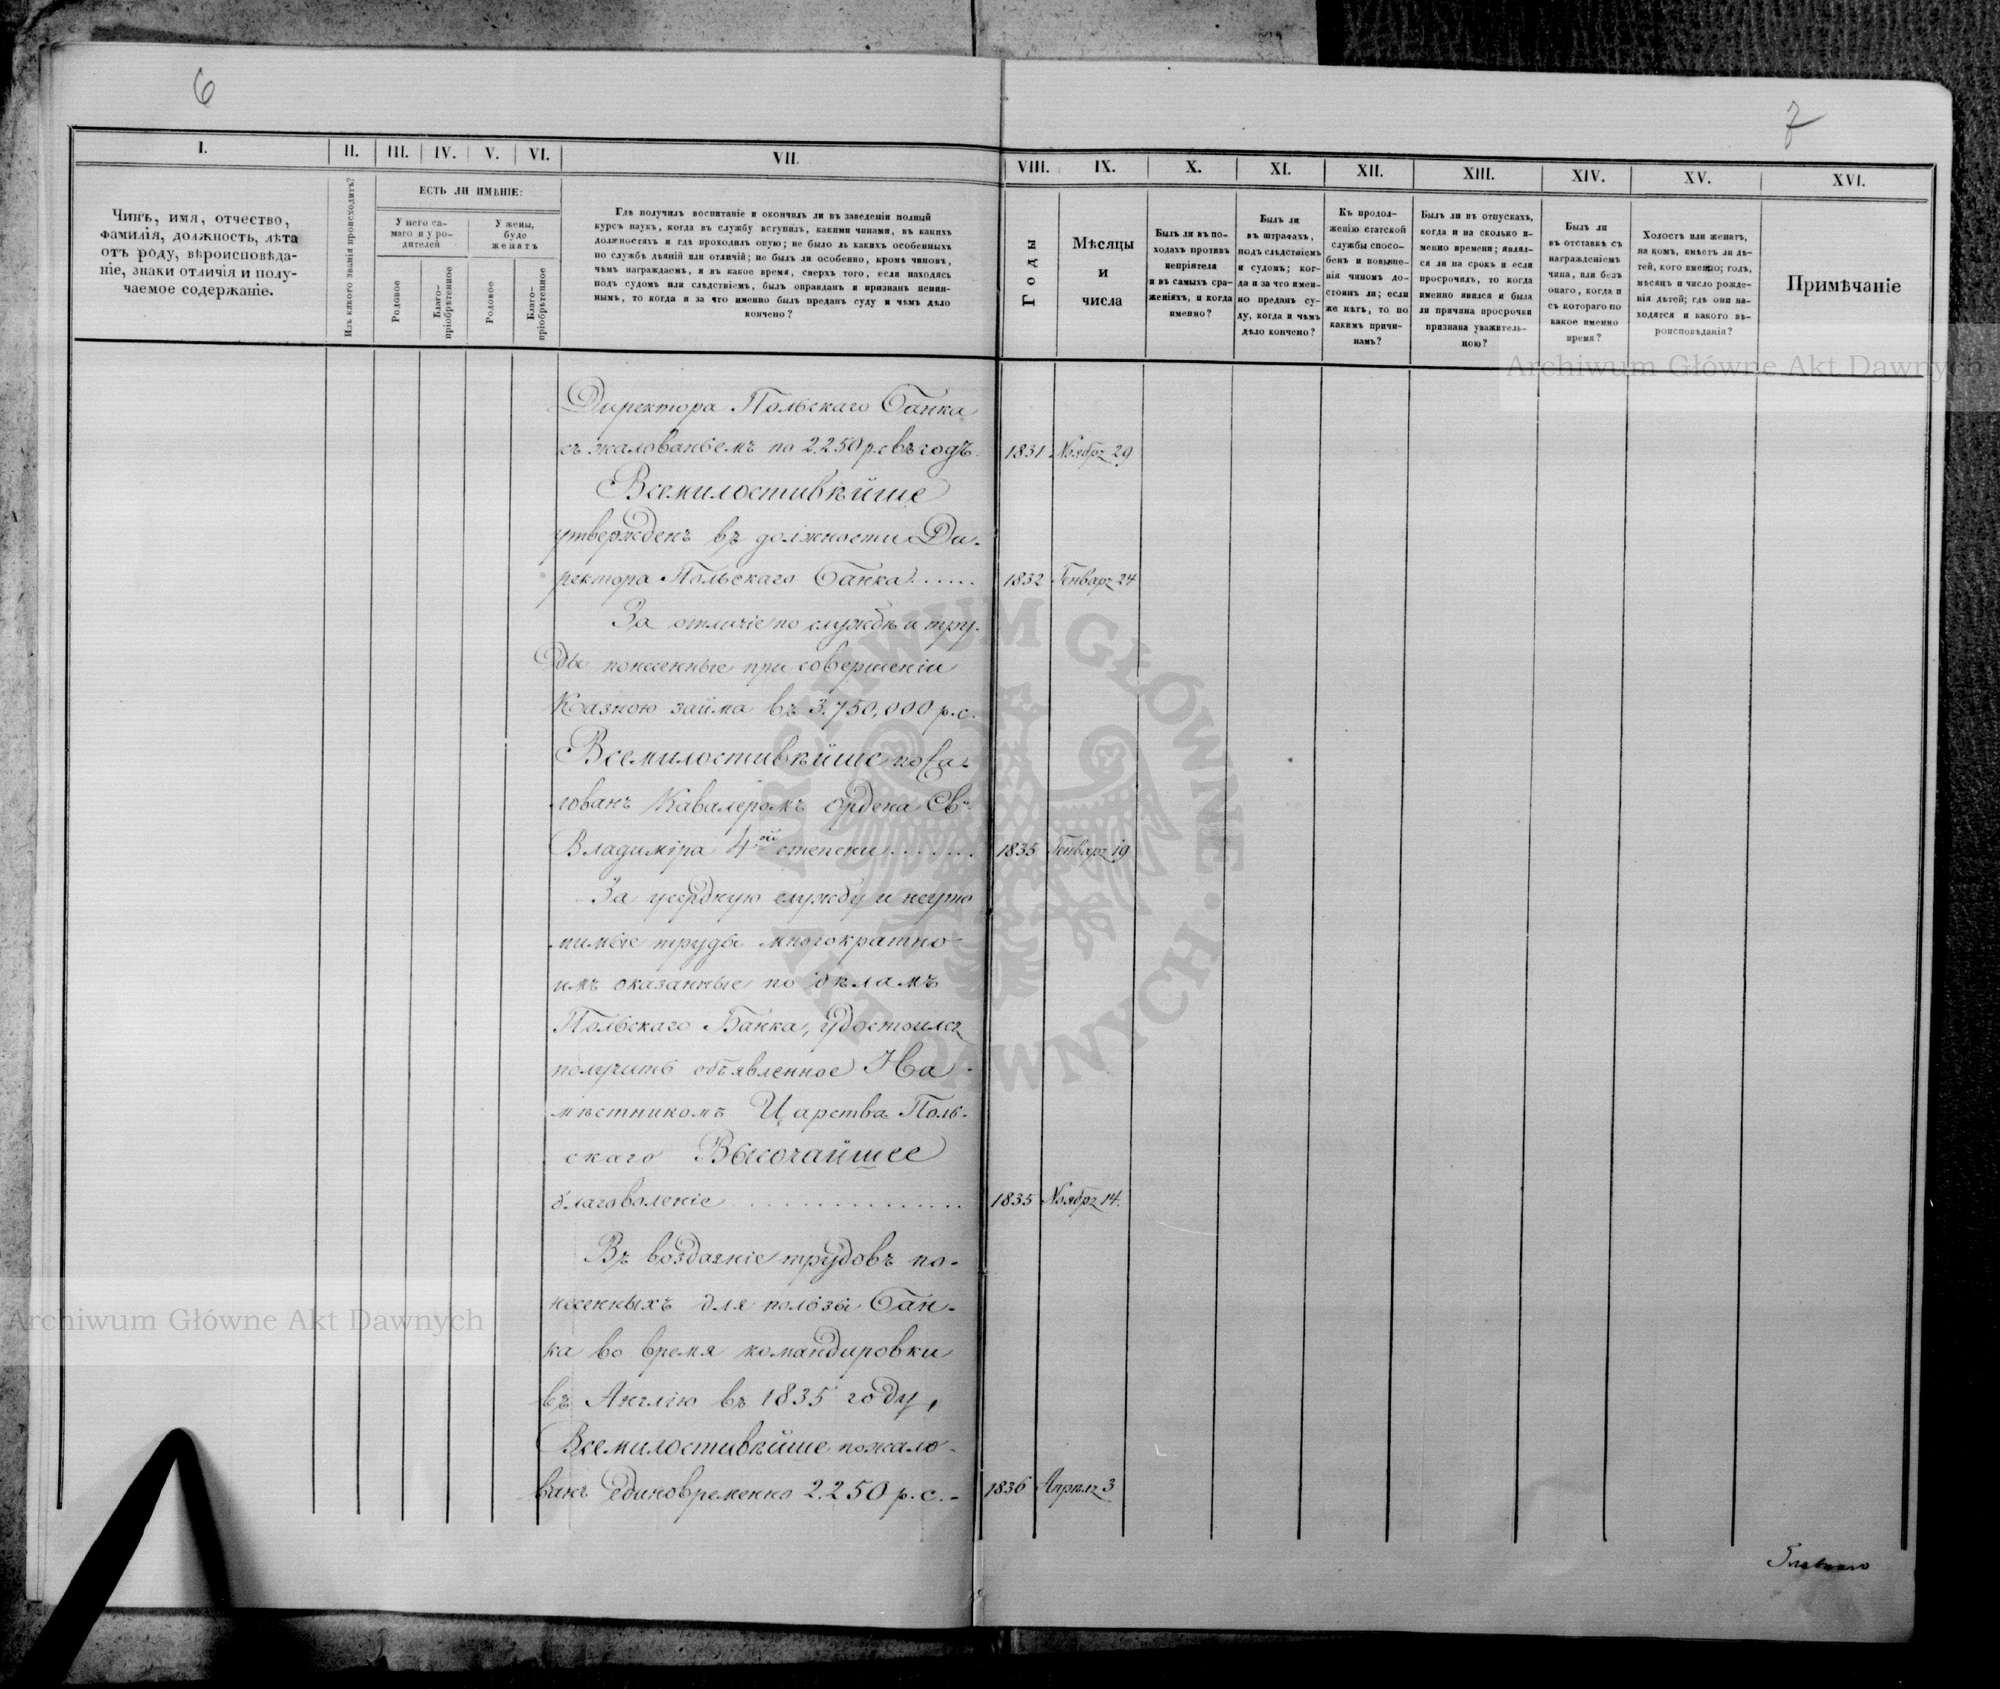 6
7
I.
II.
III.
IV.
V.
VI.
VII.
VIII.
IX.
X.
XI.
XII.
XIII.
XIV.
XV.
XVI.
Чинъ, имя, отчество,
фамилія, должность, лѣта
отъ роду, вѣроисповѣда-
ніе, знаки отличія и полу-
чаемое содержаніе.
Изъ какого званія происходитъ?
ЕСТЬ ЛИ ИМѢНІЕ:
У него са-
маго и у ро-
дителей
У жены,
буде
женатъ
Родовое
Благо-
пріобрѣтенное
Родовое
Благо-
пріобрѣтенное
Гдѣ получилъ воспитаніе и окончилъ ли въ заведеніи полный
курсъ наукъ, когда въ службу вступилъ, какими чинами, въ какихъ
должностяхъ и гдѣ проходилъ оную; не было ль какихъ особенныхъ
по службѣ дѣяній или отличій; не былъ ли особенно, кромѣ чиновъ,
чѣмъ награждаемъ, и въ какое время, сверхъ того, если находясь
подъ судомъ или слѣдствіемъ, былъ оправданъ и признанъ невин-
нымъ, то когда и за что именно былъ преданъ суду и чѣмъ дѣло
кончено?
Годы
Мѣсяцы
и
числа
Былъ ли въ по-
ходахъ противъ
непріятеля
и въ самыхъ сра-
женіяхъ, и когда
именно?
Былъ ли
въ штрафахъ,
подъ слѣдствіемъ
и судомъ; ког-
да и за что имен-
но преданъ су-
ду, когда и чѣмъ
дѣло кончено?
Къ продол-
женію статской
службы спосо-
бенъ и повыше-
нія чиномъ до-
стоинъ ли; если
же нѣтъ, то по
какимъ причи-
намъ?
Былъ ли въ отпускахъ,
когда и на сколько и-
менно времени; являл-
ся ли на срокъ и если
просрочилъ, то когда
именно явился и была
ли причина просрочки
признана уважитель-
ною?
Былъ ли
въ отставкѣ съ
награжденіемъ
чина, или безъ
онаго, когда и
съ котораго по
какое именно
время?
Холостъ или женатъ,
на комъ, имѣетъ ли дѣ-
тей, кого именно; годъ,
мѣсяцъ и число рожде-
нія дѣтей; гдѣ они на-
ходятся и какого вѣ-
роисповѣданія?
Примѣчаніе
Директора Польскаго Банка
съ жалованьемъ по 2.250 р.с въ годъ. 1831 Ноябрz 29
Всемилостивѣйше
утвержденъ въ должности Ди-
ректора Польскаго Банка...... 1832 Генварz 24
За отличіе по службѣ и тру-
ды понесенные при совершеніи
Казною займа въ 3.750,000 р.с.
Всемилостивѣйше пожа-
лованъ Кавалеромъ ордена Св.
Владиміра 4ой степени....... 1835 Генварz 19
За усердную службу и неуто
мимые труды многократно
имъ оказанные по дѣламъ
Польскаго Банка, удостоился
получить объявленное На-
мѣстникомъ Царства Поль-
скаго Высочайшее
благоволеніе............... 1835 Ноябрz 14.
Въ воздаяніе трудовъ по-
несенныхъ для пользы Бан-
ка во время командировки
въ Англію въ 1835 году,
Всемилостивѣйше пожало-
ванъ единовременно 2.250 р.с.- 1836 Апрѣлz 3
Главнаго
Archiwum Główne Akt Dawnych
Archiwum Główne Akt Dawnych
ARCHIWUM GŁÓWNE · AKT DAWNYCH ·